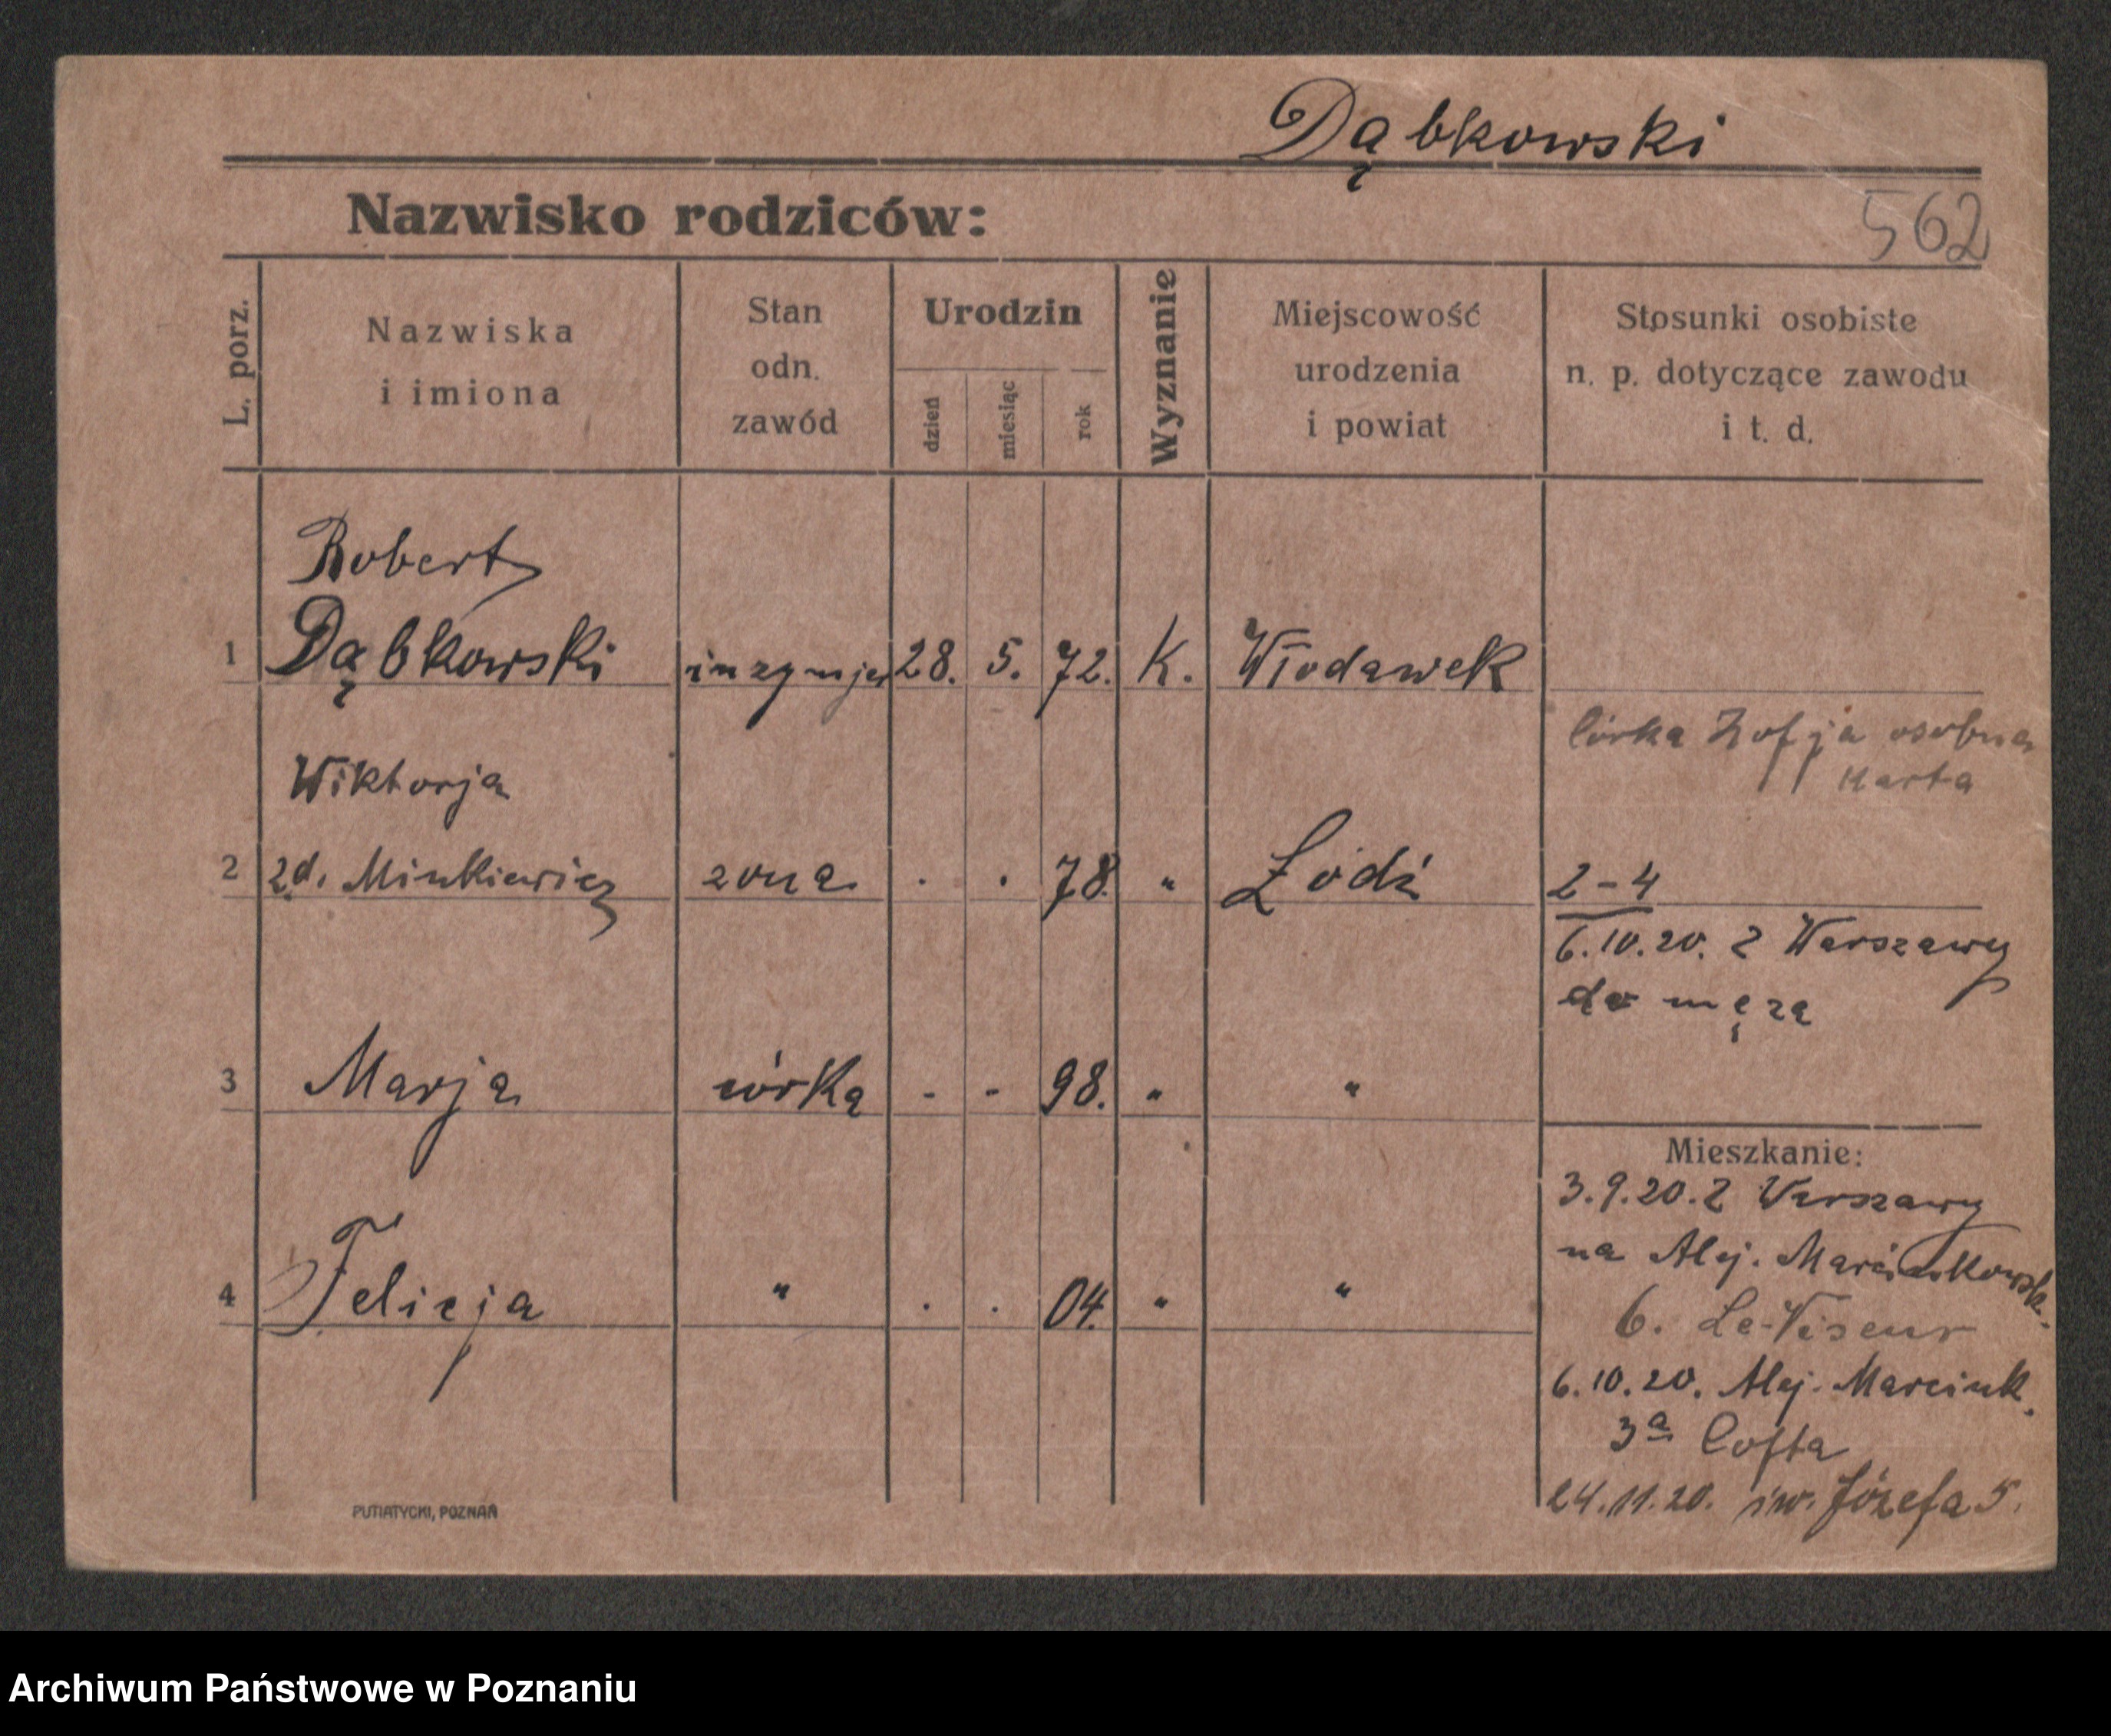 Dąbkowski
Nazwisko rodziców:
562
L. porz.
Nazwiska
i imiona
Stan
odn.
zawód
Urodzin
dzień
miesiąc
rok
Wyznanie
Miejscowość
urodzenia
i powiat
Stosunki osobiste
n. p. dotyczące zawodu
i t. d.
Robert
1 Dąbkowski inzynjer 28. 5. 72. K. Włodawek
córka Zofja osobna
karta
Wiktorja
2 zd. Minkiewicz zona . . 78. " Łódź 2-4
6.10.20. z Warszawy
do męza
3 Marja córka - - 98. " "
Mieszkanie:
3.9.20. z Warszawy
na Alej. Marcinkowsk.
4 Felicja " . . 04. " "
6. Le-Viseur
6.10.20. Alej. Marcink.
3a Cofta
24.11.20. św. Józefa 5.
PUTIATYCKI, POZNAŃ
Archiwum Państwowe w Poznaniu